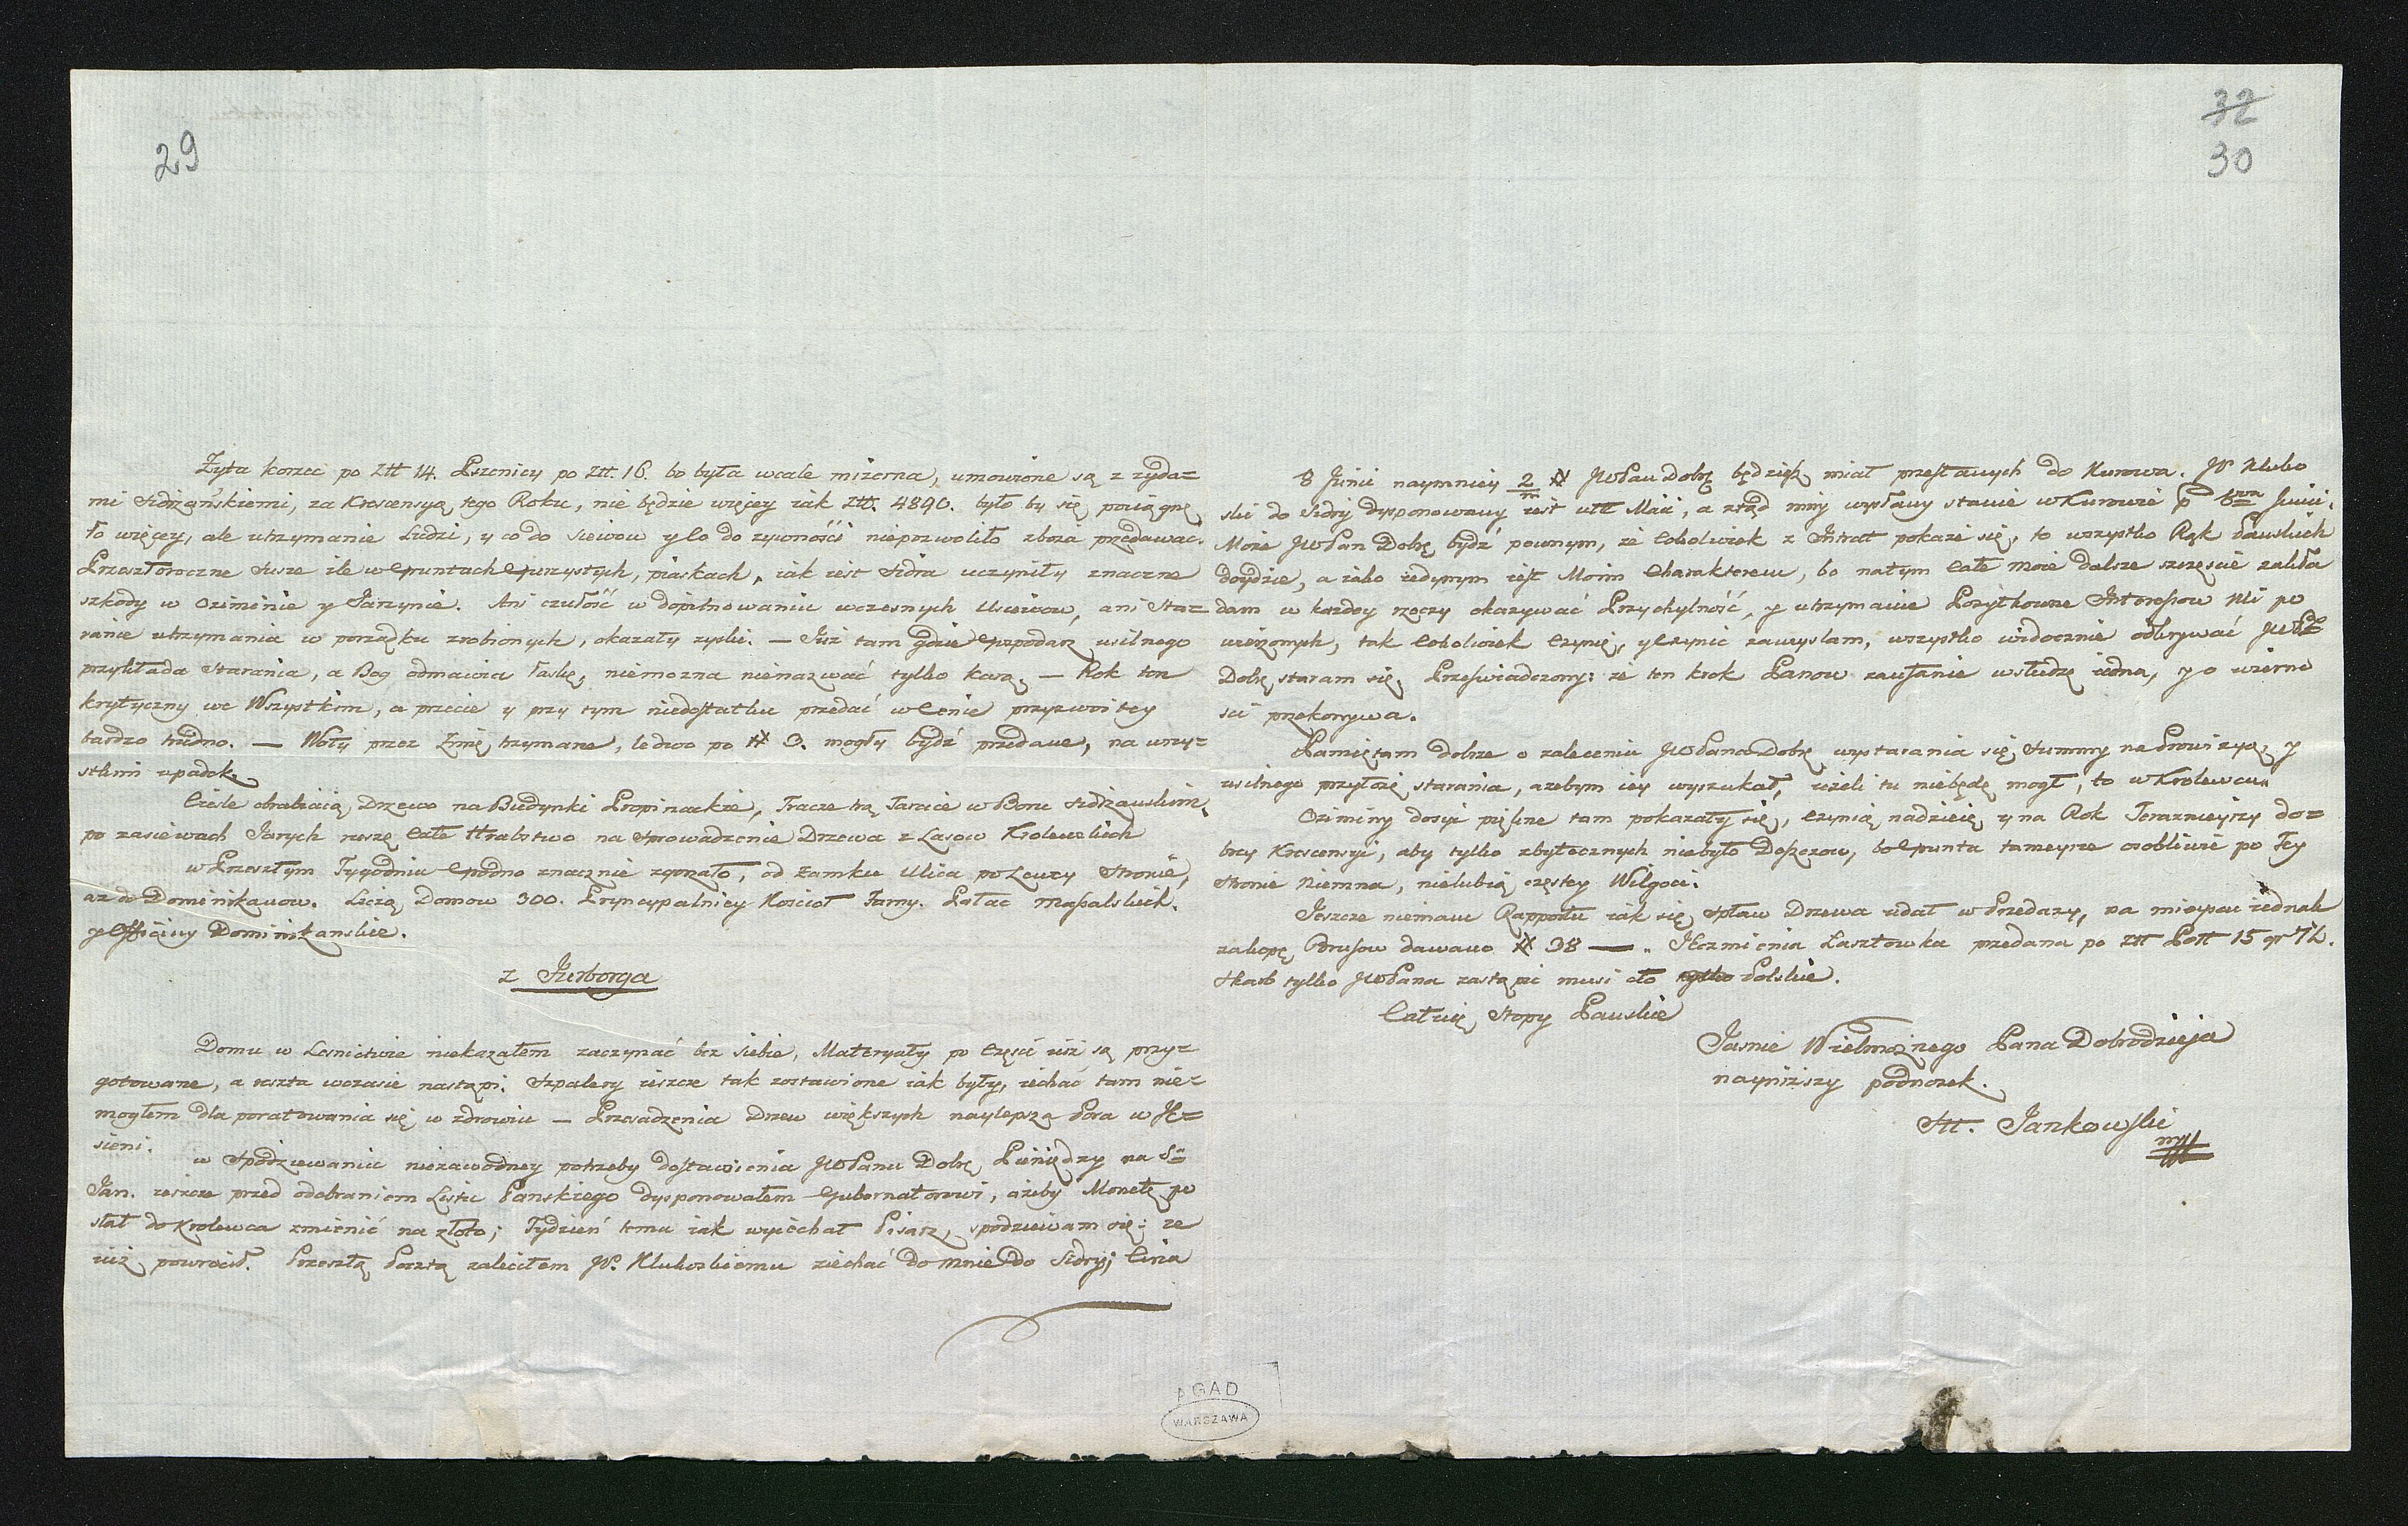 29
Zyta korzec po Złł 14. Pszenicy po Złł. 16. bo była wcale mizerna, umowione są z zyda=
mi Sidrzańskiemi, za Krescensyą tego Roku, nie będzie więcey iak Złł. 4890. było by się pociągnę
ło więcey, ale utrzymanie Ludzi, y co do siewow y Co do zywności niepozwoliło zboza przedawać.
Przeszłoroczne Susze ile w Gruntach Gurzystych, piaskach, iak iest Sidra uczyniły znaczne
szkody w Oziminie y Jarzynie. Ani czułość w dopilnowaniu wczesnych Usiewow, ani Sta=
ranie utrzymania w porządku zrobionych, okazały zyski. — Już tam gdzie Gospodarz usilnego
przykłada Starania, a Bog odmawia łaskę, niemozna nienazwać tylko karą. — Rok ten
krytyczny we Wszystkim, a przecie y przy tym niedostatku przedać w Cenie przyzwoitey
bardzo trudno. — Woły przez Zimę trzymane, ledwo po # 9. mogły bydź przedane, na wszy=
stkim upadek.
Cieśle obrabiaią Drzewo na Budynki Propinackie, Tracze trą Tarcice w Boru Sidrzanskim,
po zasiewach Jarych ruszę Całe Hrabstwo na Sprowadzenie Drzewa z Lasow Krolewskich
w Przeszłym Tygodniu Grodno znacznie zgorzało, od Zamku Ulica po Lewey Stronie,
az do Dominikanow. Liczą Domow 300. Pryncypalniey Kościoł Farny. Pałac Massalskich.
y Officiny Dominikanskie.
z Jurborga
Domu w Lesnictwie niekazałem zaczynać bez siebie, Materyały po Części iuż są przy=
gotowane, a reszta wczasie nastąpi. Szpalery ieszcze tak zostawione iak były, iechać tam nie=
mogłem dla poratowania się w zdrowiu — Przesadzenia Drzew większych naylepsza Pora w Je=
sieni.
w Spodziewaniu niezawodney potrzeby dostawienia JWPanu Dobr. Pieniędzy na S.
Jan. ieszcze przed odebraniem Listu Panskiego dysponowałem Gubernatorowi, ażeby Monetę po
słał do Krolewca zmienić na złoto; Tydzień temu iak wyiechał Pisarz, spodziewam się: ze
iuż powrocił. Przeszłą Pocztą zaleciłem JP. Klukowskiemu ziechać do mnie do Sidry; Circa
32
30
8 Junii naymniey 2/m # JWPan Dobr. będziesz miał przesłanych do Kurowa. JP. Kluko
ski do Sidry dysponowany iest ult Maii, a ztąd mny wysłany stanie w Kurowie p 8va Junii.
Może JWPan Dobr. bydź pewnym, że Cokolwiek z Intrat pokaże się, to wszystko Rąk Panskich
doydzie, a iako iedynym iest Moim Charakterem, bo natym Całe moie dalsze szczęście zakła
dam w kazdey rzeczy okazywać Przychylność, y utrzymanie Pozytkowne Interessow Mi po
wierzonych, tak Cokolwiek Czynię, y Czynić zamyslam, wszystko widocznie odkrywać JWP
Dobr. staram się. Przeświadczony: że ten krok Panow zaufanie w słudze iedna, y o wierno
ści przekonywa.
Pamiętam dobrze o zaleceniu JWPana Dobr. wystarania się Summy na Prowizyą, y
usilnego przyłożę starania, azebym iey wyszukał, ieżeli tu niebędę mogł, to w Krolewcu.
Oziminy dosyć piękne tam pokazały się, Czynią nadzieię y na Rok Teraznieyszy do=
brey Krescensyi, aby tylko zbytecznych niebyło Deszczow, bo Grunta tameysze osobliwie po Tey
Stronie Niemna, nielubią częstey Wilgoci.
Jeszcze niemam Rapportu iak się Spław Drzewa udał w Przedazy, na mieyscu iednak
za kopę Brusow dawano # 38 —. Jęczmienia Łasztowka przedana po Złł Poll 15 gr 7½.
Skarb tylko JWPana zastąpić musi cło Polskie.
Całuię Stopy Panskie
Jasnie Wielmożnego Pana Dobrodzieja
nayniższy podnozek.
Jankowski
mpp
AGAD
WARSZAWA